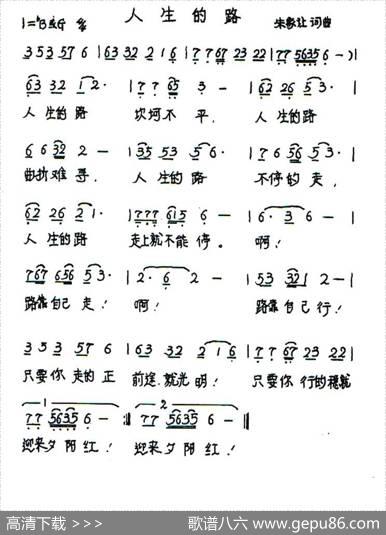 人生的路
1=♭B或G 2/4 朱教让 词曲
3 53 53 57 6 | 63 32 2 1 6 | 7 7 67 23 22 | 77 5635 6 - ) |
63 32 1 2· | 7 7 65 3 - | 62 26 5 3· |
人生的路 坎坷不平, 人生的路
6 6 32 2 - | 35 53 5 6· | 7 6 56 5 3· |
曲折难寻, 人生的路 不停的走,
62 26 2 1· | 777 615 6 - | 6· 3 6 - |
人生的路 走上就不能停。 啊!
767 656 5 3· | 2· 6 2 - | 53 32 1 2 - |
路靠自己走! 啊! 路靠自己行!
3 53 57 6 | 63 32 2 1 6 | 7 7 67 23 22 |
只要你走的正 前途就光明! 只要你行的稳就
1 2
77 5635 6 - :‖ 77 5635 6 - ‖
迎来夕阳红! 迎来夕阳红!
高清下载 >>> 歌谱八六 www.gepu86.com